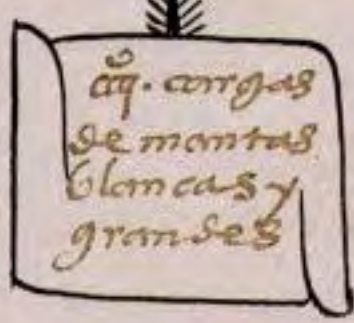 cargas
de mantas
blancas y
grandes